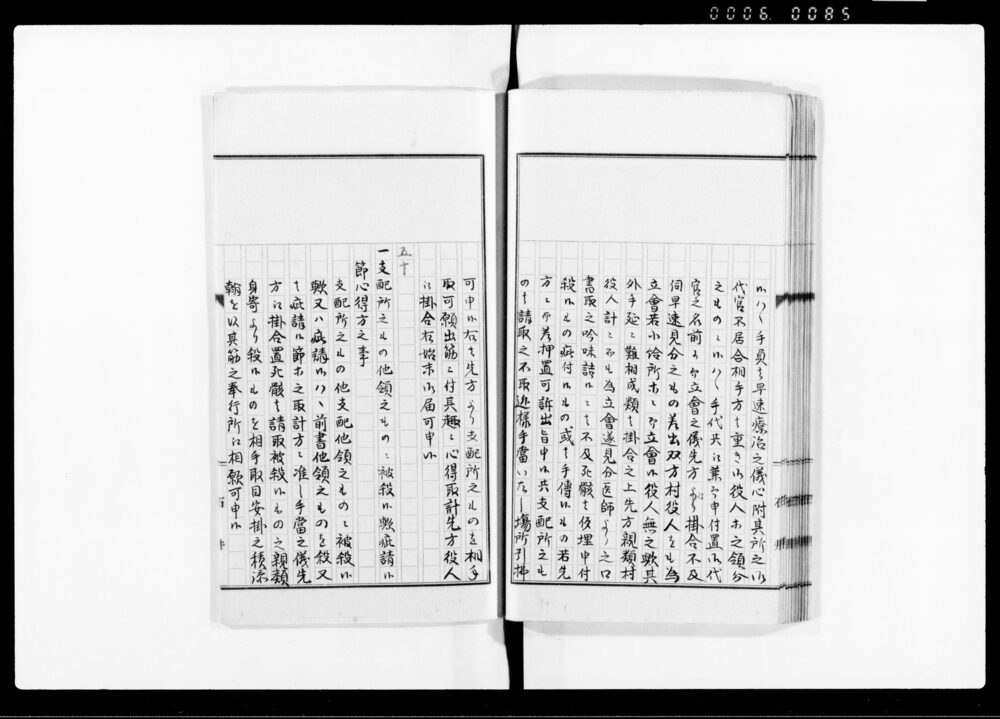 0006. 0085
候ハヽ手負者早速療治之儀心附其所之御
代官不居合相手方者重き御役人等之領分
之ものニ候ハヽ手代共江兼而申付置御代
官之名前ニ而立會之儀先方より掛合不及
伺早速見分之もの差出双方村役人をも為
立會若小給所等ニ而立會候役人無之歟其
外手延ニ難相成類者掛合之上先方親類村
役人計ニ而も為立會遂見分医師よりも口
書取之吟味詰候ニ者不及死骸者仮埋申付
殺候もの疵付候もの或者手傳候もの若先
方ニ而差押置可訴出旨申候共支配所之も
の者請取之不取逃様手當いたし場所引拂
可申候右者先方より支配所之ものを相手
取可願出筋ニ付其趣ニ心得取計先方役人
江掛合右始末御届可申候
五十
一支配所之もの他領之もの二被殺候歟疵請候
節心得方之事
支配所之もの他支配他領之ものニ被殺候
歟又ハ疵請候ハヽ前書他領之ものを殺又
者疵請候節等之取計方ニ准し手當之儀先
方江掛合置死骸者請取被殺候もの之親類
身寄より殺候ものを相手取目安掛之積添
翰を以其筋之奉行所江相願可申候